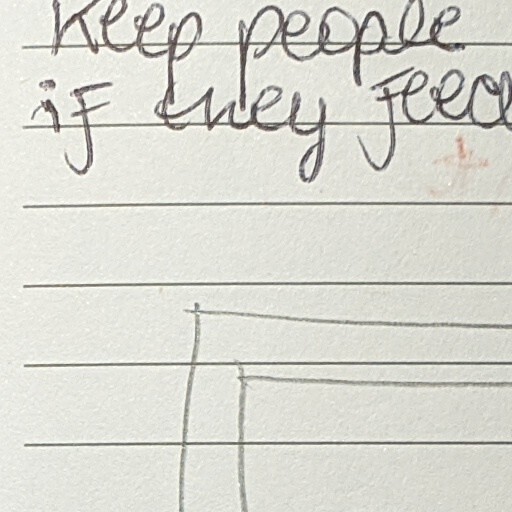 Keep people
if they feed